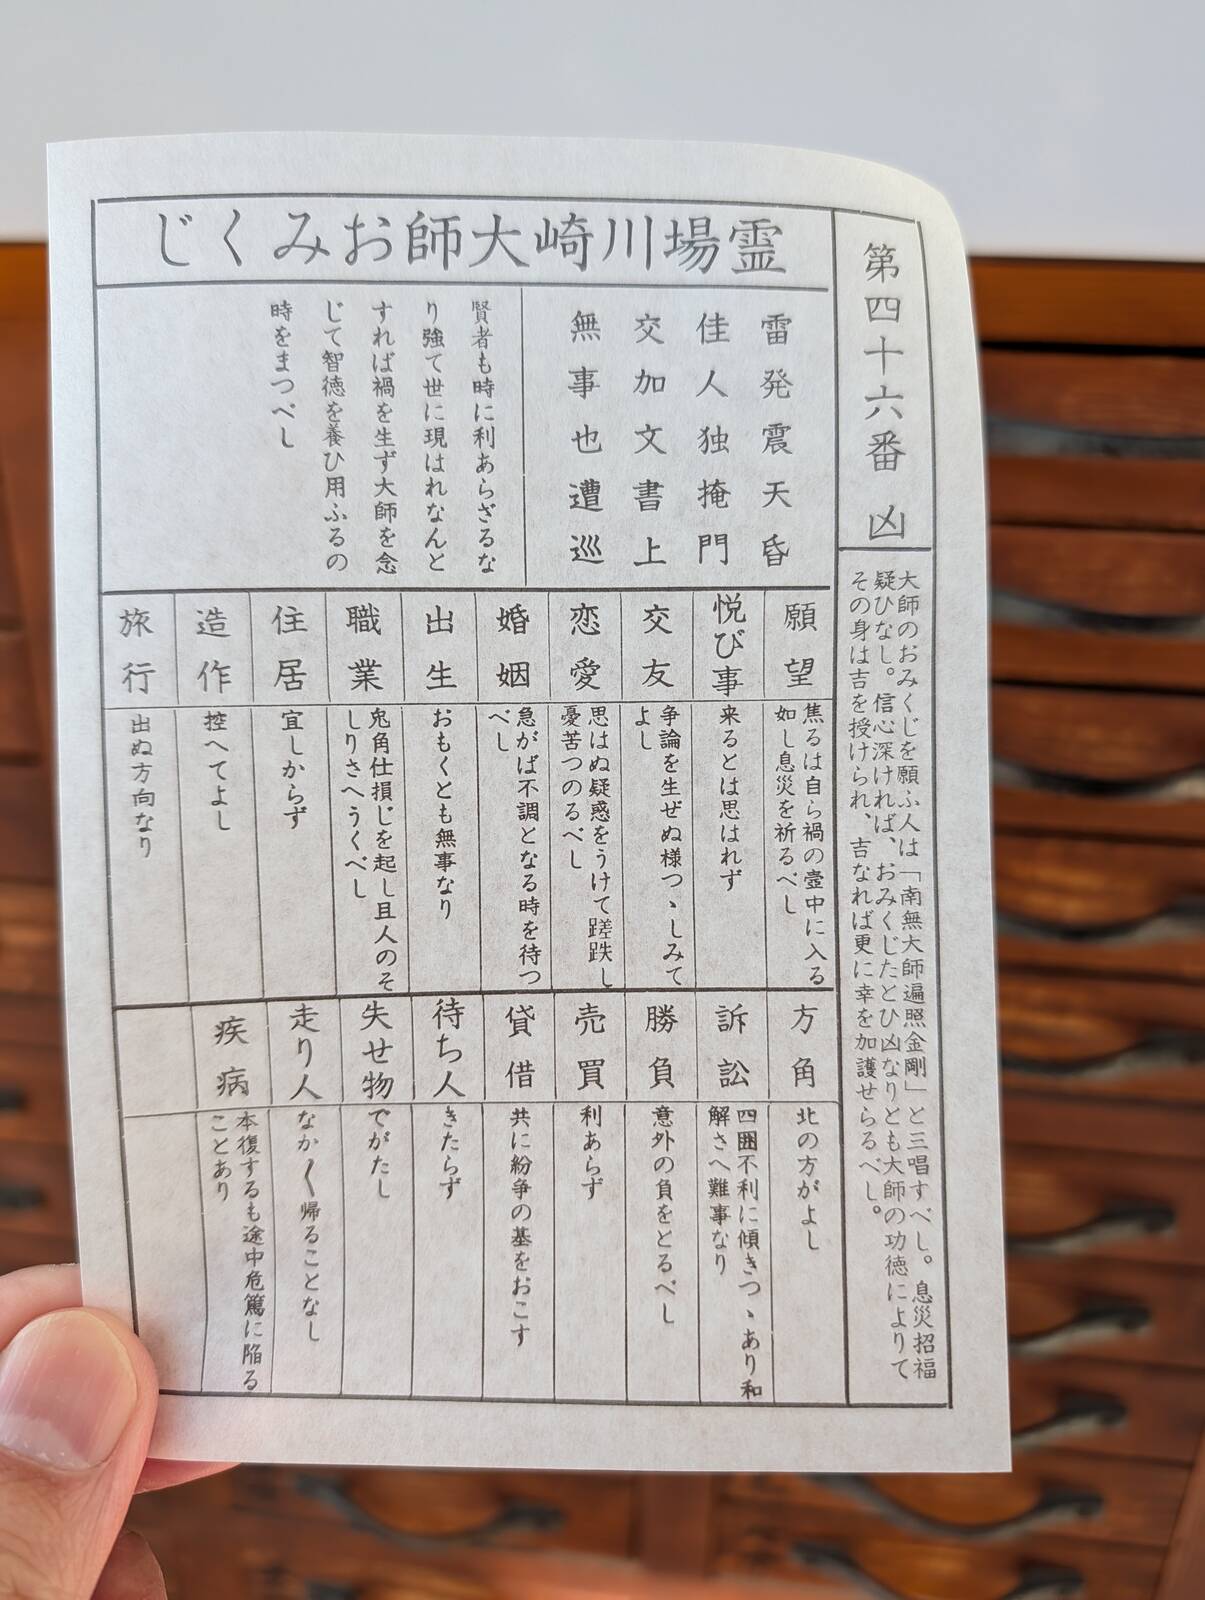 霊場川崎大師おみくじ
第四十六番 凶
大師のおみくじを願ふ人は「南無大師遍照金剛」と三唱すべし。息災招福
疑ひなし。信心深ければ、おみくじたとひ凶なりとも大師の功徳によりて
その身は吉を授けられ、吉なれば更に幸を加護せらるべし。
雷発震天昏
佳人独掩門
交加文書上
無事也遭巡
賢者も時に利あらざるな
り強て世に現はれなんと
すれば禍を生ず大師を念
じて智徳を養ひ用ふるの
時をまつべし
願望
焦るは自ら禍の壺中に入る
如し息災を祈るべし
悦び事
来るとは思はれず
交友
争論を生ぜぬ様つゝしみて
よし
恋愛
思はぬ疑惑をうけて蹉跌し
憂苦つのるべし
婚姻
急がば不調となる時を待つ
べし
出生
おもくとも無事なり
職業
兎角仕損じを起し且人のそ
しりさへうくべし
住居
宜しからず
造作
控へてよし
旅行
出ぬ方向なり
方角
北の方がよし
訴訟
四囲不利に傾きつゝあり和
解さへ難事なり
勝負
意外の負をとるべし
売買
利あらず
貸借
共に紛争の基をおこす
待ち人
きたらず
失せ物
でがたし
走り人
なか〱帰ることなし
疾病
本復するも途中危篤に陥る
ことあり